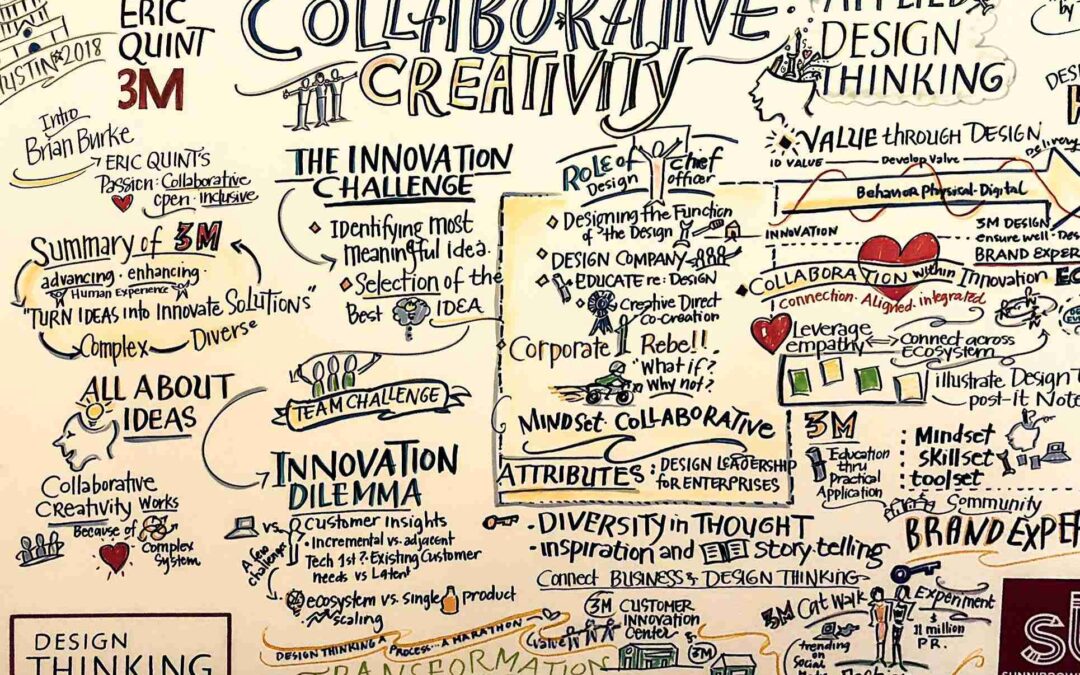 AUSTIN 2018
ERIC
QUINT
3M
COLLABORATIVE
CREATIVITY
APPLIED
DESIGN
THINKING
Intro
Brian Burke
ERIC QUINT'S
Passion: Collaborative
open · inclusive
Summary of 3M
advancing · enhancing ·
Human Experience
"TURN IDEAS into Innovate Solutions"
Complex — Diverse
ALL ABOUT
IDEAS
Collaborative
Creativity Works
Because of
Complex
System
DESIGN
THINKING
THE INNOVATION
CHALLENGE
Identifying most
meaningful idea.
Selection of the
Best IDEA
TEAM CHALLENGE
INNOVATION
DILEMMA
vs.
A few
challenges
Customer Insights
• Incremental vs. adjacent
Tech 1st? · Existing Customer
needs vs Latent
ecosystem vs. single product
scaling
DESIGN THINKING A PROCESS... A MARATHON
TRANSFORMATION
Role of chief
Design officer
Designing the Function
of the Design
DESIGN COMPANY
EDUCATE re: DESIGN
Creative Direct
Co-creation
Corporate Rebel!!
"What if?
Why not?"
MINDSET COLLABORATIVE
ATTRIBUTES: DESIGN LEADERSHIP
FOR ENTERPRISES
• DIVERSITY in THOUGHT
• inspiration and story telling
Connect BUSINESS & DESIGN THINKING
3M CUSTOMER
INNOVATION
Center
Value
3M
VALUE through DESIGN
ID VALUE — Develop Value — Delivery
Behavior Physical-Digital
INNOVATION
3M DESIGN
ensure well
BRAND EXPER
COLLABORATION within Innovation
1 connection · Aligned · integrated
Leverage
empathy
Connect across
Ecosystem
illustrate Design
post-it Note
3M
Education
thru
Practical
Application
: Mindset
: skillset
: toolset
Community
BRAND EXPE
3M Cat Walk
trending
on
Social
Experiment
$ 11 million
PR.